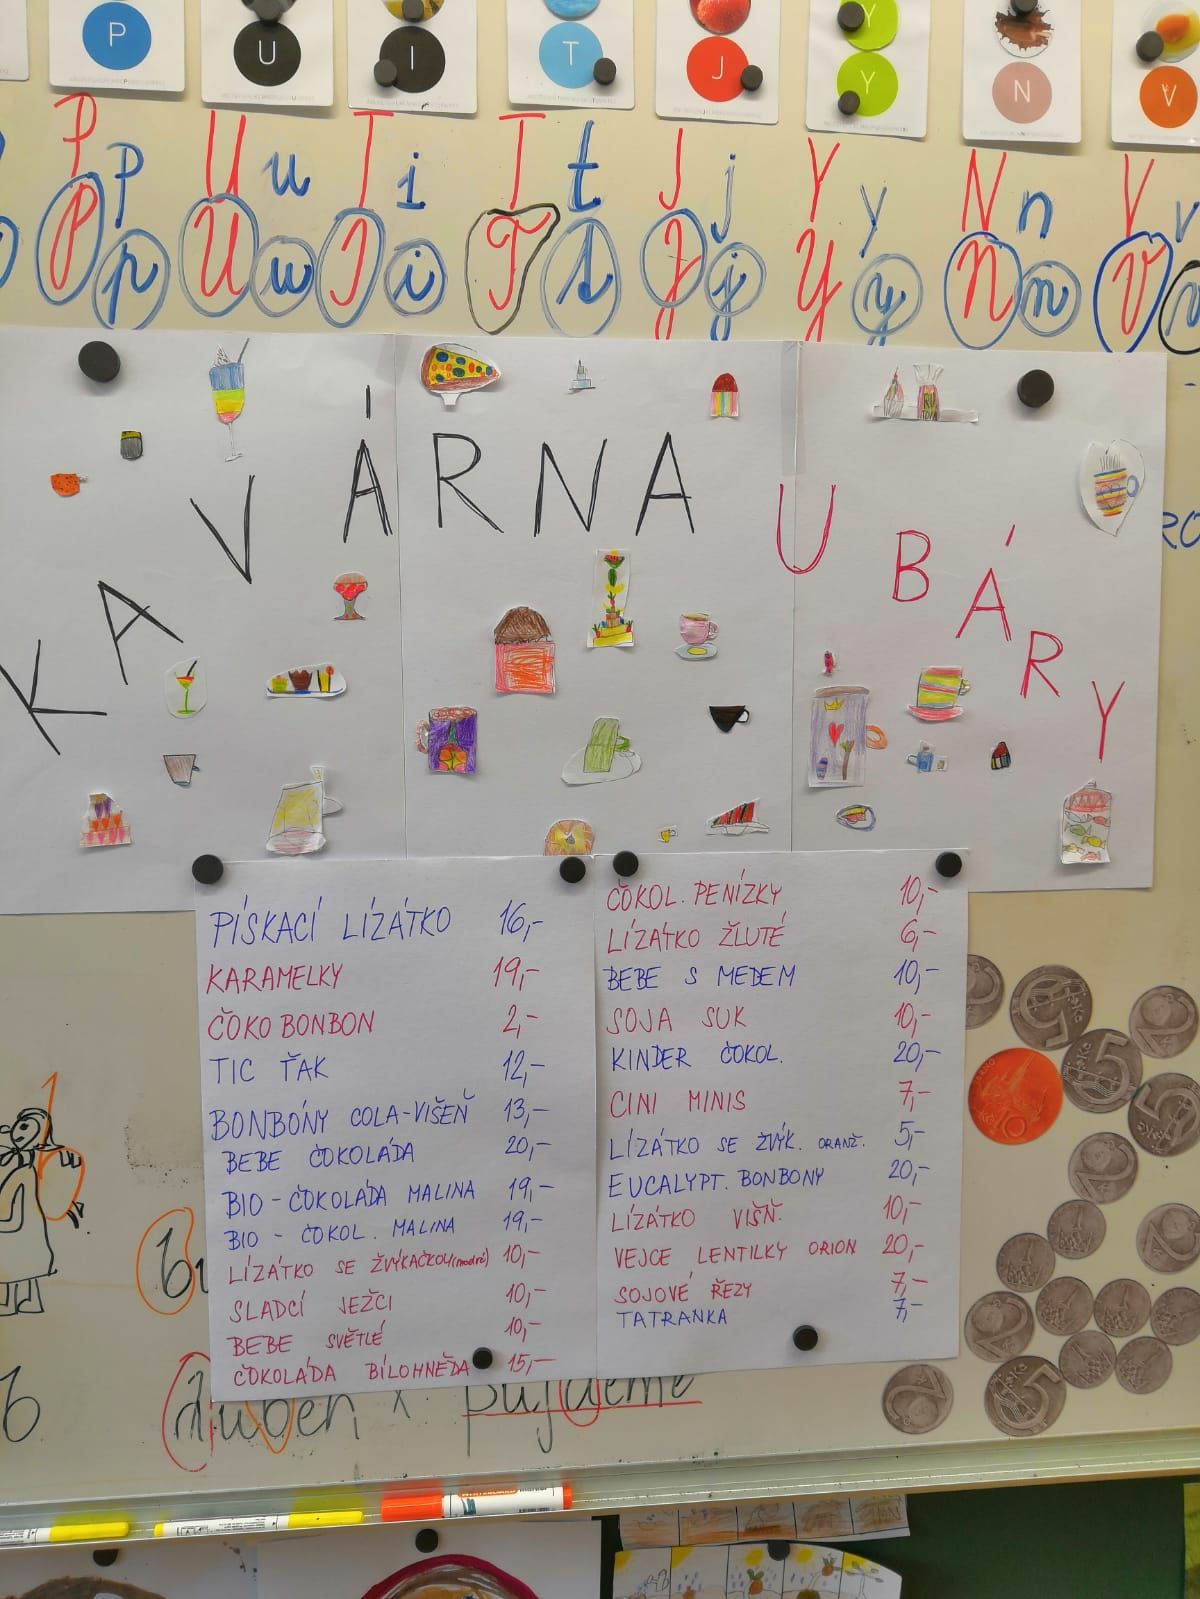 P U I T J Y N V
P p U u I i T t J j Y y N n V v
P p U u I i T t J j Y y N n V v
KAVÁRNA U BÁRY
PÍSKACÍ LÍZÁTKO 16,-
KARAMELKY 19,-
ČOKOBONBON 2,-
TIC ŤAK 12,-
BONBÓNY COLA-VIŠEŇ 13,-
BEBE ČOKOLÁDA 20,-
BIO-ČOKOLÁDA MALINA 19,-
BIO - ČOKOL. MALINA 19,-
LÍZÁTKO SE ŽVÝKAČKOU (modré) 10,-
SLADCÍ JEŽCI 10,-
BEBE SVĚTLÉ 10,-
ČOKOLÁDA BÍLOHNĚDÁ 15,-
ČOKOL. PENÍZKY 10,-
LÍZÁTKO ŽLUTÉ 6,-
BEBE S MEDEM 10,-
SOJA SUK 10,-
KINDER ČOKOL. 20,-
CINI MINIS 7,-
LÍZÁTKO SE ŽVÝK. ORANŽ. 5,-
EUCALYPT. BONBONY 20,-
LÍZÁTKO VIŠŇ. 10,-
VEJCE LENTILKY ORION 20,-
SOJOVÉ ŘEZY 7,-
TATRANKA 7,-
duben x půjdeme